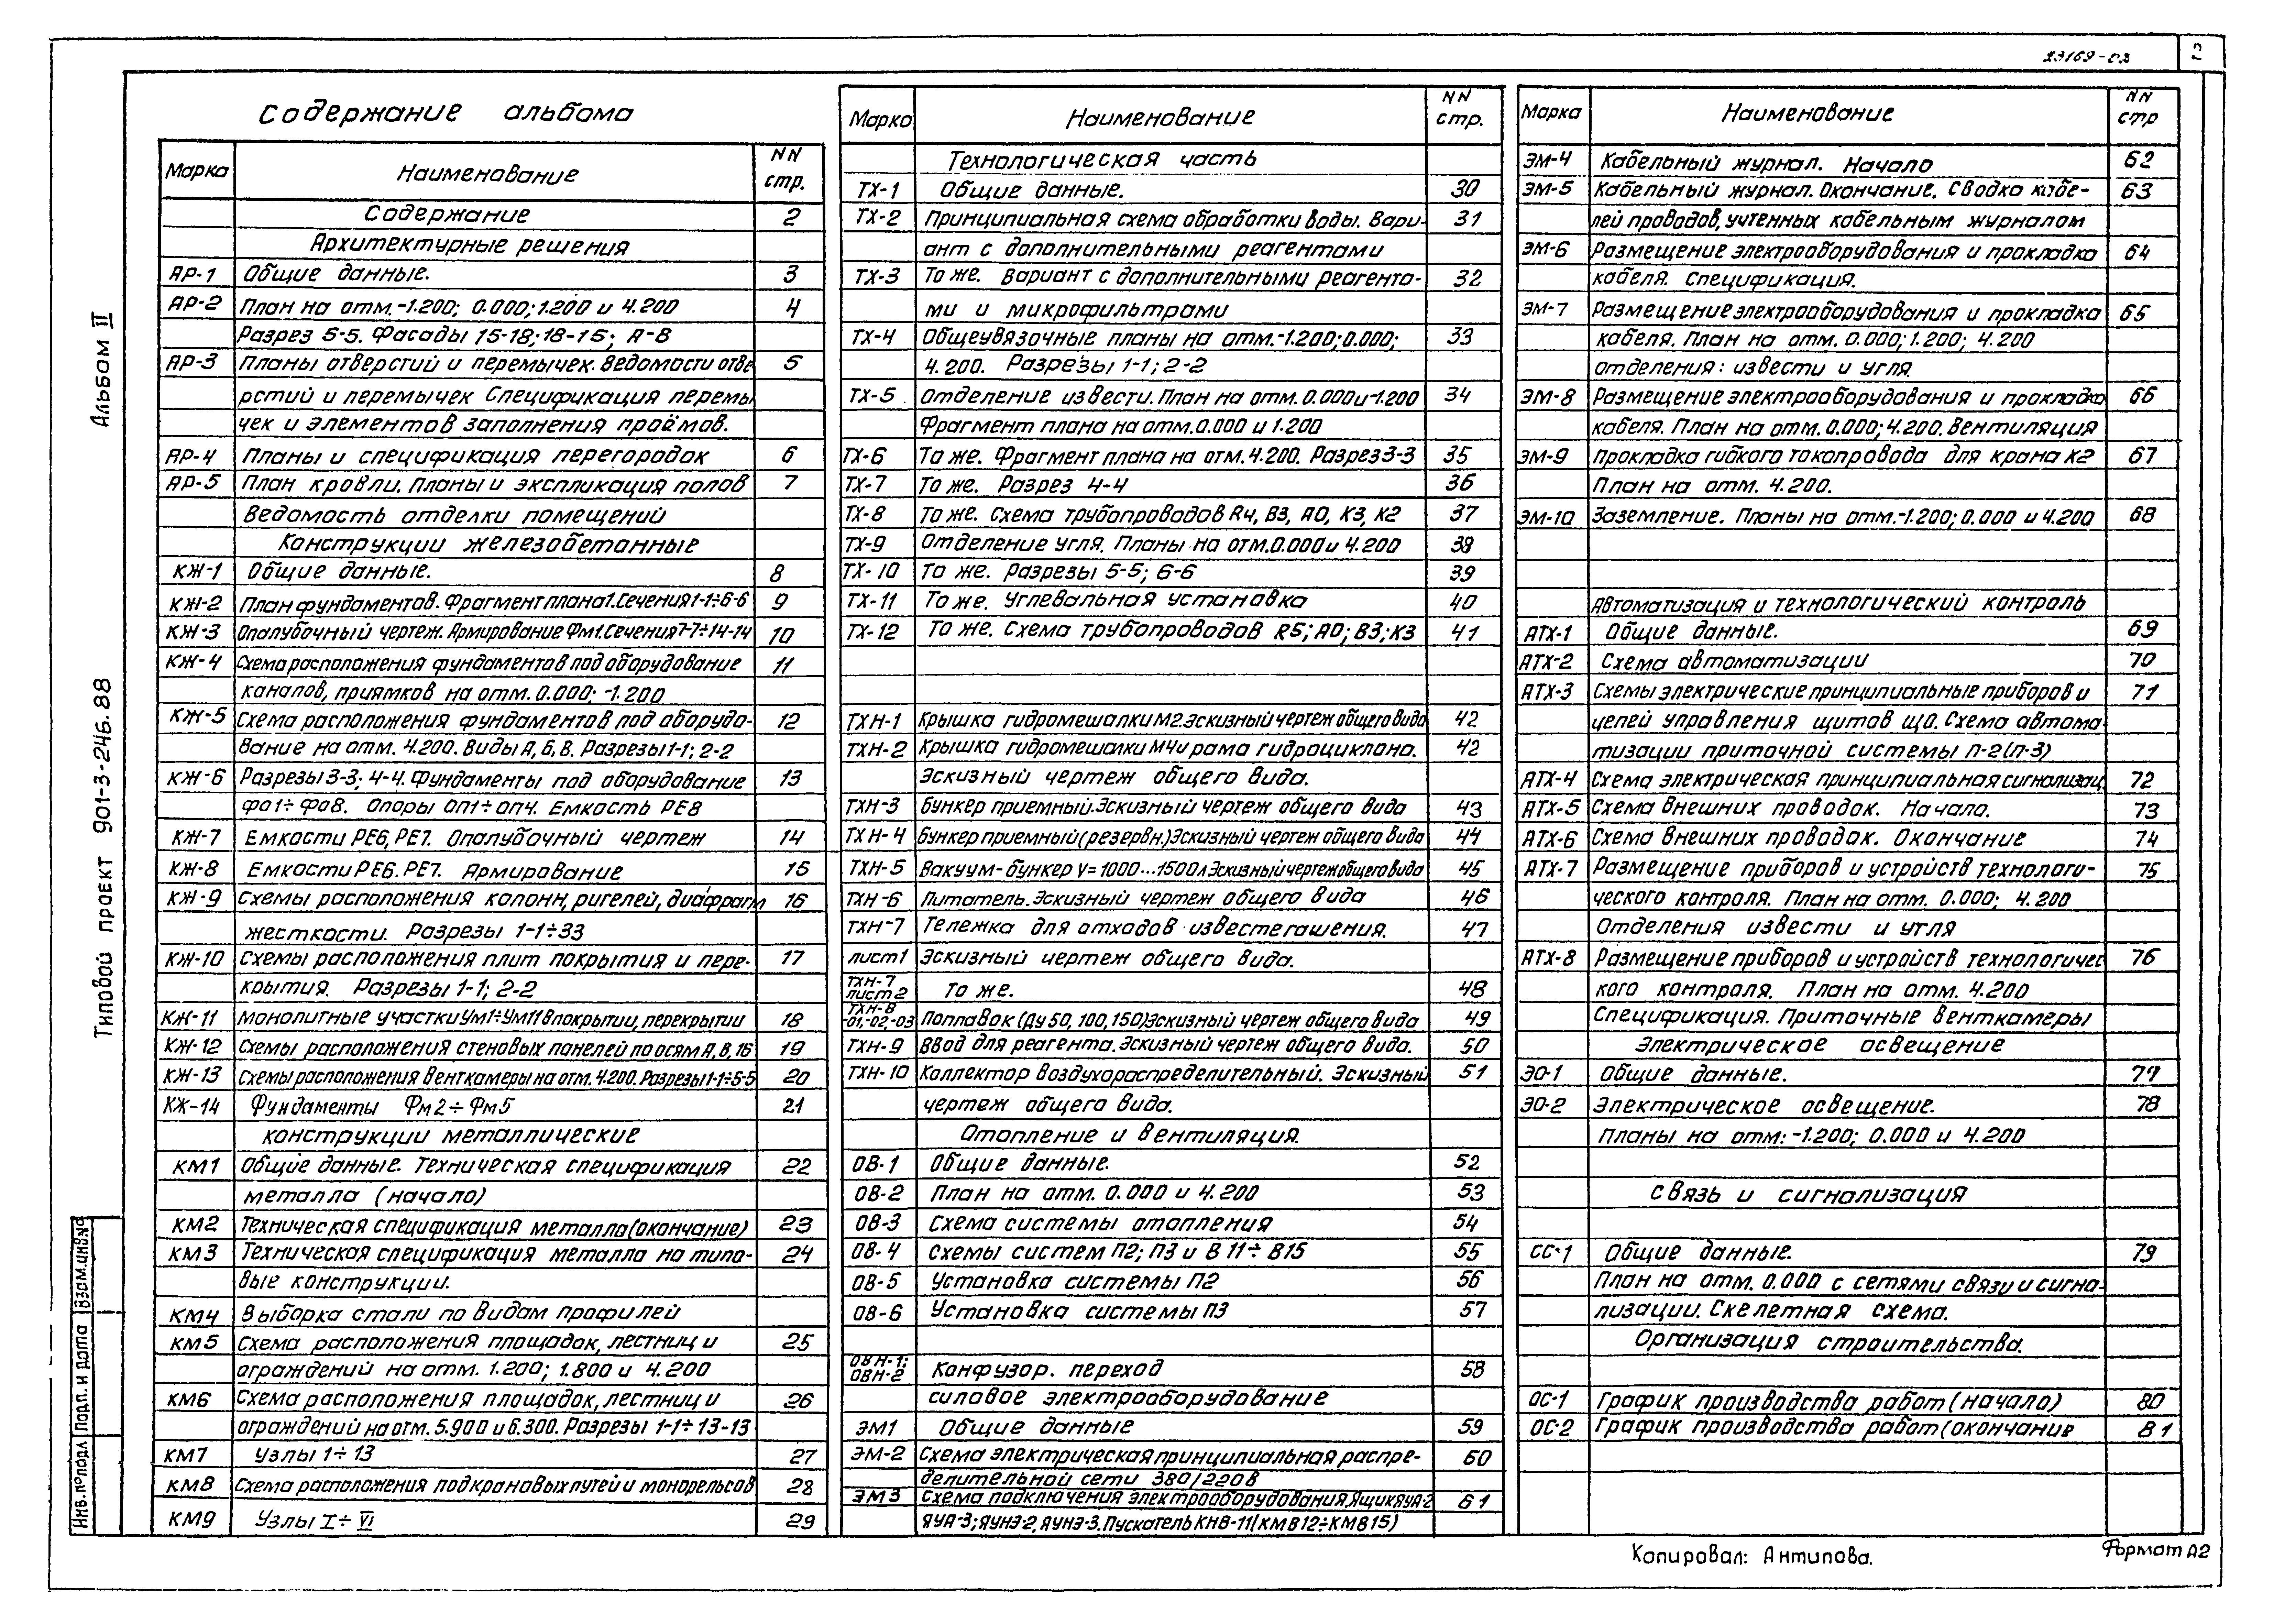 23169-03
2
Альбом II
Типовой проект 901-3-246.88
Инв.№подл Подп. и дата Взам.инв.№
Содержание альбома
Марка Наименование NN стр.
Содержание 2
Архитектурные решения
АР-1 Общие данные. 3
АР-2 План на отм.-1.200; 0.000; 1.200 и 4.200 4
Разрез 5-5. Фасады 15-18; 18-15; А-В
АР-3 Планы отверстий и перемычек. Ведомости отве 5
рстий и перемычек Спецификация перемы
чек и элементов заполнения проёмов.
АР-4 Планы и спецификация перегородок 6
АР-5 План кровли. Планы и экспликация полов 7
Ведомость отделки помещений
Конструкции железобетонные
КЖ-1 Общие данные. 8
КЖ-2 План фундаментов. Фрагмент плана 1. Сечения 1-1÷6-6 9
КЖ-3 Опалубочный чертеж. Армирование Фм1. Сечения 7-7÷14-14 10
КЖ-4 Схема расположения фундаментов под оборудование 11
каналов, приямков на отм. 0.000; -1.200
КЖ-5 Схема расположения фундаментов под оборудо- 12
вание на отм. 4.200. Виды А, Б, В. Разрезы 1-1; 2-2
КЖ-6 Разрезы 3-3; 4-4. Фундаменты под оборудование 13
Фо1÷Фо8. Опоры оп1÷оп4. Емкость РЕ8
КЖ-7 Емкости РЕ6, РЕ7. Опалубочный чертеж 14
КЖ-8 Емкости РЕ6. РЕ7. Армирование 15
КЖ-9 Схемы расположения колонн, ригелей, диафрагм 16
жесткости. Разрезы 1-1÷33
КЖ-10 Схемы расположения плит покрытия и пере- 17
крытия. Разрезы 1-1; 2-2
КЖ-11 Монолитные участки Ум1÷Ум11 в покрытии, перекрытии 18
КЖ-12 Схемы расположения стеновых панелей по осям А, В, 16 19
КЖ-13 Схемы расположения венткамеры на отм. 4.200. Разрезы 1-1÷5-5 20
КЖ-14 Фундаменты Фм2÷Фм5 21
конструкции металлические
КМ1 Общие данные. Техническая спецификация 22
металла (начало)
КМ2 Техническая спецификация металла (окончание) 23
КМ3 Техническая спецификация металла на типо- 24
вые конструкции.
КМ4 Выборка стали по видам профилей
КМ5 Схема расположения площадок, лестниц и 25
ограждений на отм. 1.200; 1.800 и 4.200
КМ6 Схема расположения площадок, лестниц и 26
ограждений на отм. 5.900 и 6.300. Разрезы 1-1÷13-13
КМ7 Узлы 1÷13 27
КМ8 Схема расположения подкрановых путей и монорельсов 28
КМ9 Узлы I÷VI 29
Марка Наименование NN стр.
Технологическая часть
ТХ-1 Общие данные. 30
ТХ-2 Принципиальная схема обработки воды. Вари- 31
ант с дополнительными реагентами
ТХ-3 То же. Вариант с дополнительными реагента- 32
ми и микрофильтрами
ТХ-4 Общеувязочные планы на отм.-1.200; 0.000; 33
4.200. Разрезы 1-1; 2-2
ТХ-5 Отделение извести. План на отм. 0.000 и -1.200 34
Фрагмент плана на отм. 0.000 и 1.200
ТХ-6 То же. Фрагмент плана на отм. 4.200. Разрез 3-3 35
ТХ-7 То же. Разрез 4-4 36
ТХ-8 То же. Схема трубопроводов R4, В3, А0, К3, К2 37
ТХ-9 Отделение угля. Планы на отм. 0.000 и 4.200 38
ТХ-10 То же. Разрезы 5-5; 6-6 39
ТХ-11 То же. Углевальная установка 40
ТХ-12 То же. Схема трубопроводов R5; А0; В3; К3 41
ТХН-1 Крышка гидромешалки М2. Эскизный чертеж общего вида 42
ТХН-2 Крышка гидромешалки М4 и рама гидроциклона. 42
Эскизный чертеж общего вида.
ТХН-3 бункер приемный. Эскизный чертеж общего вида 43
ТХН-4 бункер приемный (резервн.) Эскизный чертеж общего вида 44
ТХН-5 Вакуум-бункер V=1000...1500л Эскизный чертеж общего вида 45
ТХН-6 Питатель. Эскизный чертеж общего вида 46
ТХН-7 Тележка для отходов известегашения. 47
лист1 Эскизный чертеж общего вида.
ТХН-7 лист2 То же. 48
ТХН-8 -01,-02,-03 Поплавок (Ду 50, 100, 150) Эскизный чертеж общего вида 49
ТХН-9 Ввод для реагента. Эскизный чертеж общего вида. 50
ТХН-10 Коллектор воздухораспределительный. Эскизный 51
чертеж общего вида.
Отопление и вентиляция.
ОВ-1 Общие данные. 52
ОВ-2 План на отм. 0.000 и 4.200 53
ОВ-3 Схема системы отопления 54
ОВ-4 Схемы систем П2; П3 и В 11÷В15 55
ОВ-5 Установка системы П2 56
ОВ-6 Установка системы П3 57
ОВН-1; ОВН-2 Конфузор. переход 58
силовое электрооборудование
ЭМ1 Общие данные 59
ЭМ-2 Схема электрическая принципиальная распре- 60
делительной сети 380/220в
ЭМ3 Схема подключения электрооборудования. Ящик ЯУА-2 61
ЯУА-3; ЯУНЭ-2, ЯУНЭ-3. Пускатель КНВ-11 (КМВ12÷КМВ15)
Марка Наименование NN стр
ЭМ-4 Кабельный журнал. Начало 62
ЭМ-5 Кабельный журнал. Окончание. Сводка кабе- 63
лей проводов, учтенных кабельным журналом
ЭМ-6 Размещение электрооборудования и прокладка 64
кабеля. Спецификация.
ЭМ-7 Размещение электрооборудования и прокладка 65
кабеля. План на отм. 0.000; 1.200; 4.200
отделения: извести и угля.
ЭМ-8 Размещение электрооборудования и прокладка 66
кабеля. План на отм. 0.000; 4.200. Вентиляция
ЭМ-9 Прокладка гибкого токопровода для крана К2 67
План на отм. 4.200.
ЭМ-10 Заземление. Планы на отм.-1.200; 0.000 и 4.200 68
Автоматизация и технологический контроль
АТХ-1 Общие данные. 69
АТХ-2 Схема автоматизации 70
АТХ-3 Схемы электрические принципиальные приборов и 71
цепей управления щитов ЩО. Схема автома-
тизации приточной системы П-2 (П-3)
АТХ-4 Схема электрическая принципиальная сигнализац. 72
АТХ-5 Схема внешних проводок. Начало. 73
АТХ-6 Схема внешних проводок. Окончание 74
АТХ-7 Размещение приборов и устройств технологи- 75
ческого контроля. План на отм. 0.000; 4.200
Отделения извести и угля
АТХ-8 Размещение приборов и устройств технологичес 76
кого контроля. План на отм. 4.200
Спецификация. Приточные венткамеры
Электрическое освещение
ЭО-1 Общие данные. 77
ЭО-2 Электрическое освещение. 78
Планы на отм: -1.200; 0.000 и 4.200
связь и сигнализация
СС-1 Общие данные. 79
План на отм. 0.000 с сетями связи и сигна-
лизации. Скелетная схема.
Организация строительства.
ОС-1 График производства работ (начало) 80
ОС-2 График производства работ (окончание 81
Копировал: Антипова.
Формат А2